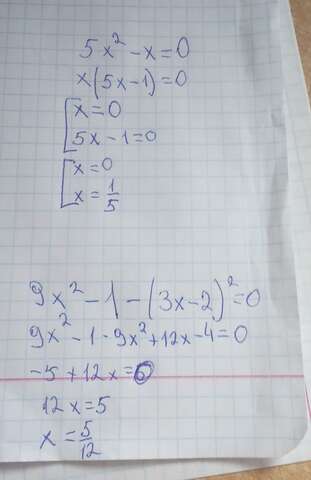 5x² - x = 0
x(5x-1) = 0
[x = 0
5x - 1 = 0
[x = 0
x = 1/5
9x² - 1 - (3x-2)² = 0
9x² - 1 - 9x² + 12x - 4 = 0
-5 + 12x = 0
12x = 5
x = 5/12